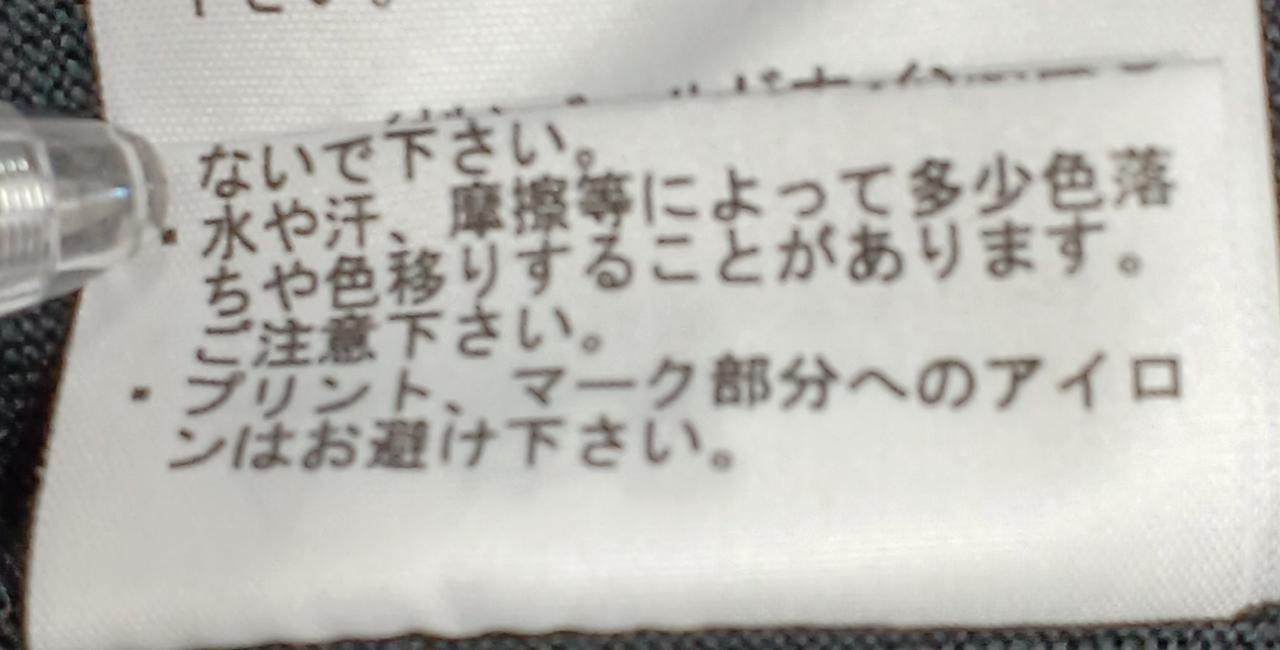 下さい。
ないで下さい。
・水や汗、摩擦等によって多少色落
ちや色移りすることがあります。
ご注意下さい。
・プリント、マーク部分へのアイロ
ンはお避け下さい。